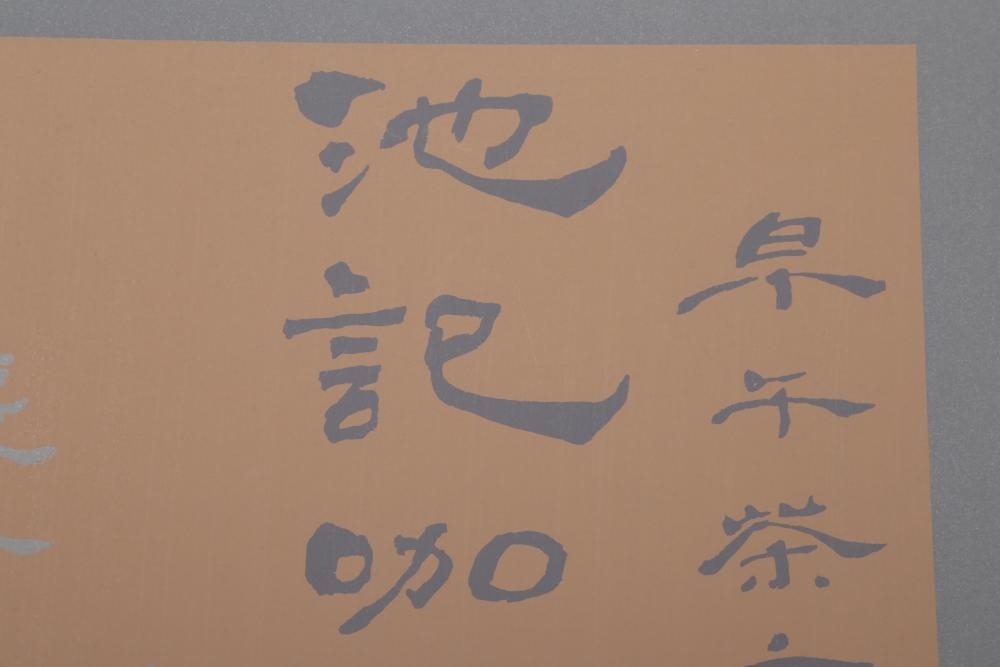 早午茶
池記咖